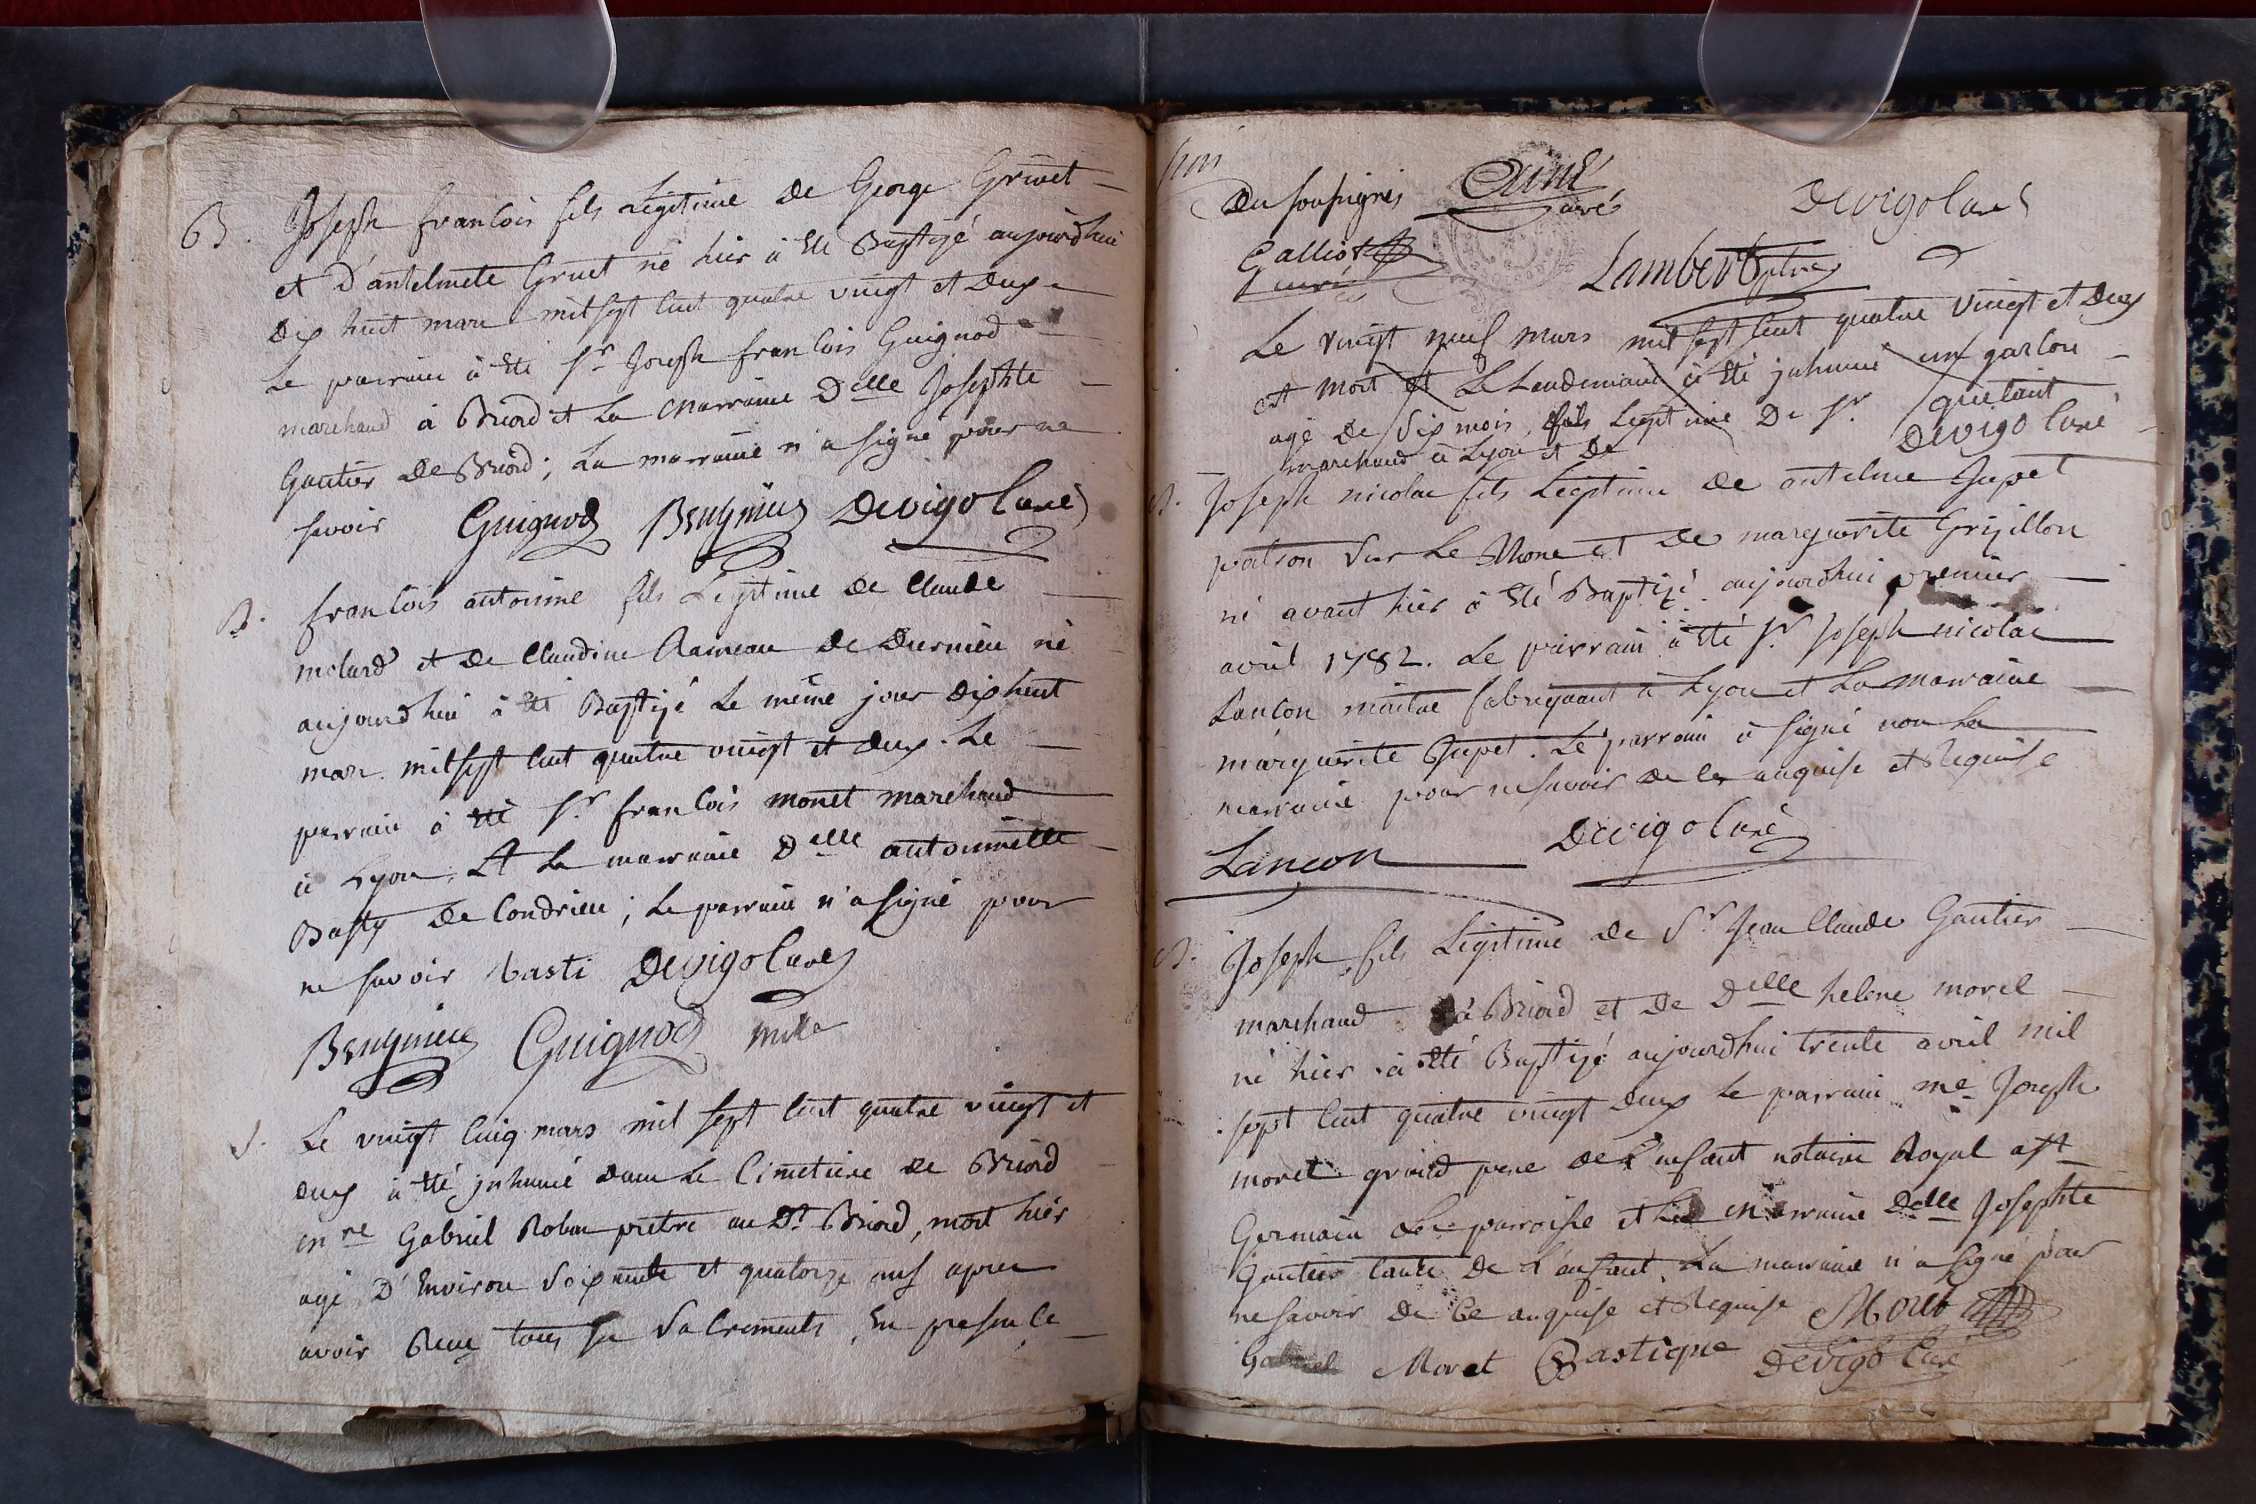 B. Joseph francois fils Légitime de George Grivet
et D'antelmete Gruet né hier à été Baptizé aujourdhui
Dix huit mars mil sept cent quatre vingt et deux
Le parrain à été Sr Joseph francois Guignod
marchand à Briord et La marraine Delle Josephte
Gautier De Briord; La marraine n'a signé pour ne
savoir Guignod Benymieu Devigo Curé
B. francois antoine fils Légitime De Claude
molard et De Claudine Rameau De Dornieu né
aujourdhui à été Baptizé Le même jour Dixhuit
mars mil sept cent quatre vingt et deux. Le
parrain à été Sr francois monet marchand
à Lyon, Et La marraine Delle antoinette
Basty De Condrieu; Le parrain n'a signé pour
ne savoir basti Devigo Curé
Benymieu Guignod
S. Le vingt cinq mars mil sept cent quatre vingt et
deux à été inhumé dans Le Cimetiere de Briord
mre Gabriel Robin pretre au Dt Briord, mort hier
agé D'Environ Soixante et quatorze ans apres
avoir Recu tous Les Sacrements, En presence
Des soussignés curé Devigo Curé
Galliot curé Lambert ptre
Le vingt neuf mars mil sept cent quatre vingt et Deux
et mort et Le Lendemain à été inhumé un garcon
agé De Six mois, fils Legitime De Sr quetant
marchand à Lyon et De Devigo Curé
B. Joseph nicolas fils Legitime De antelme Jupet
patron Sur Le Rhone et De marguerite Grizillon
né avant hier à été Baptizé aujourdhui premier
avril 1782. Le parrain à été Sr Joseph nicolas
Lancon maitre fabriquant à Lyon et La marraine
marguerite Jupet. Le parrain à signé non La
marraine pour ne savoir de ce enquise et Requise
Lancon Devigo Curé
B. Joseph, fils Légitime De Sr Jean Claude Gautier
marchand à Briord et De Delle helene moret
né hier à été Baptizé aujourdhui trente avril mil
sept cent quatre vingt Deux Le parrain me Joseph
moret grand pere de L'enfant notaire Royal a St
Germain De parroisse et La marraine Delle Josephte
Gautier tante De L'enfant. La marraine n'a signé pour
ne savoir De Ce enquise et Requise Moret
Gabriel Moret Bastigne Devigo Curé